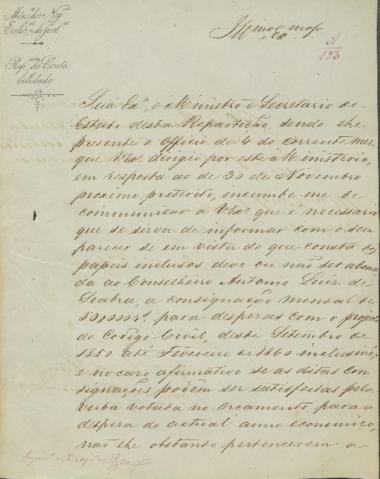 Min.º dos Neg.os
Eccles.cos e de Just.ª
Rep.am de Conta
bilidade
Illmo e Exmo Sr
3
193
Sua Ex.ª, o Ministro e Secretario de
Estado desta Repartição, sendo lhe
presente o Officio de 4 do corrente mez
que V.Ex.ª dirigio por este Ministerio,
em resposta ao de 30 de Novembro
proximo preterito, incumbe me de
communicar a V.Ex.ª que é necessario
que se sirva de informar com o seu
parecer se em vista do que consta dos
papeis inclusos deve ou não ser abona
da ao Conselheiro Antonio Luiz de
Seabra, a consignação mensal de
para despezas com o projecto
do Codigo Civil, desde Setembro de
até Fevereiro de 1860 inclusivé;
e no caso afirmativo se as ditas con
signações podem ser satisfeitas pela
verba votada no orçamento para a
despeza do actual anno economico,
não lhe obstando pertencerem a